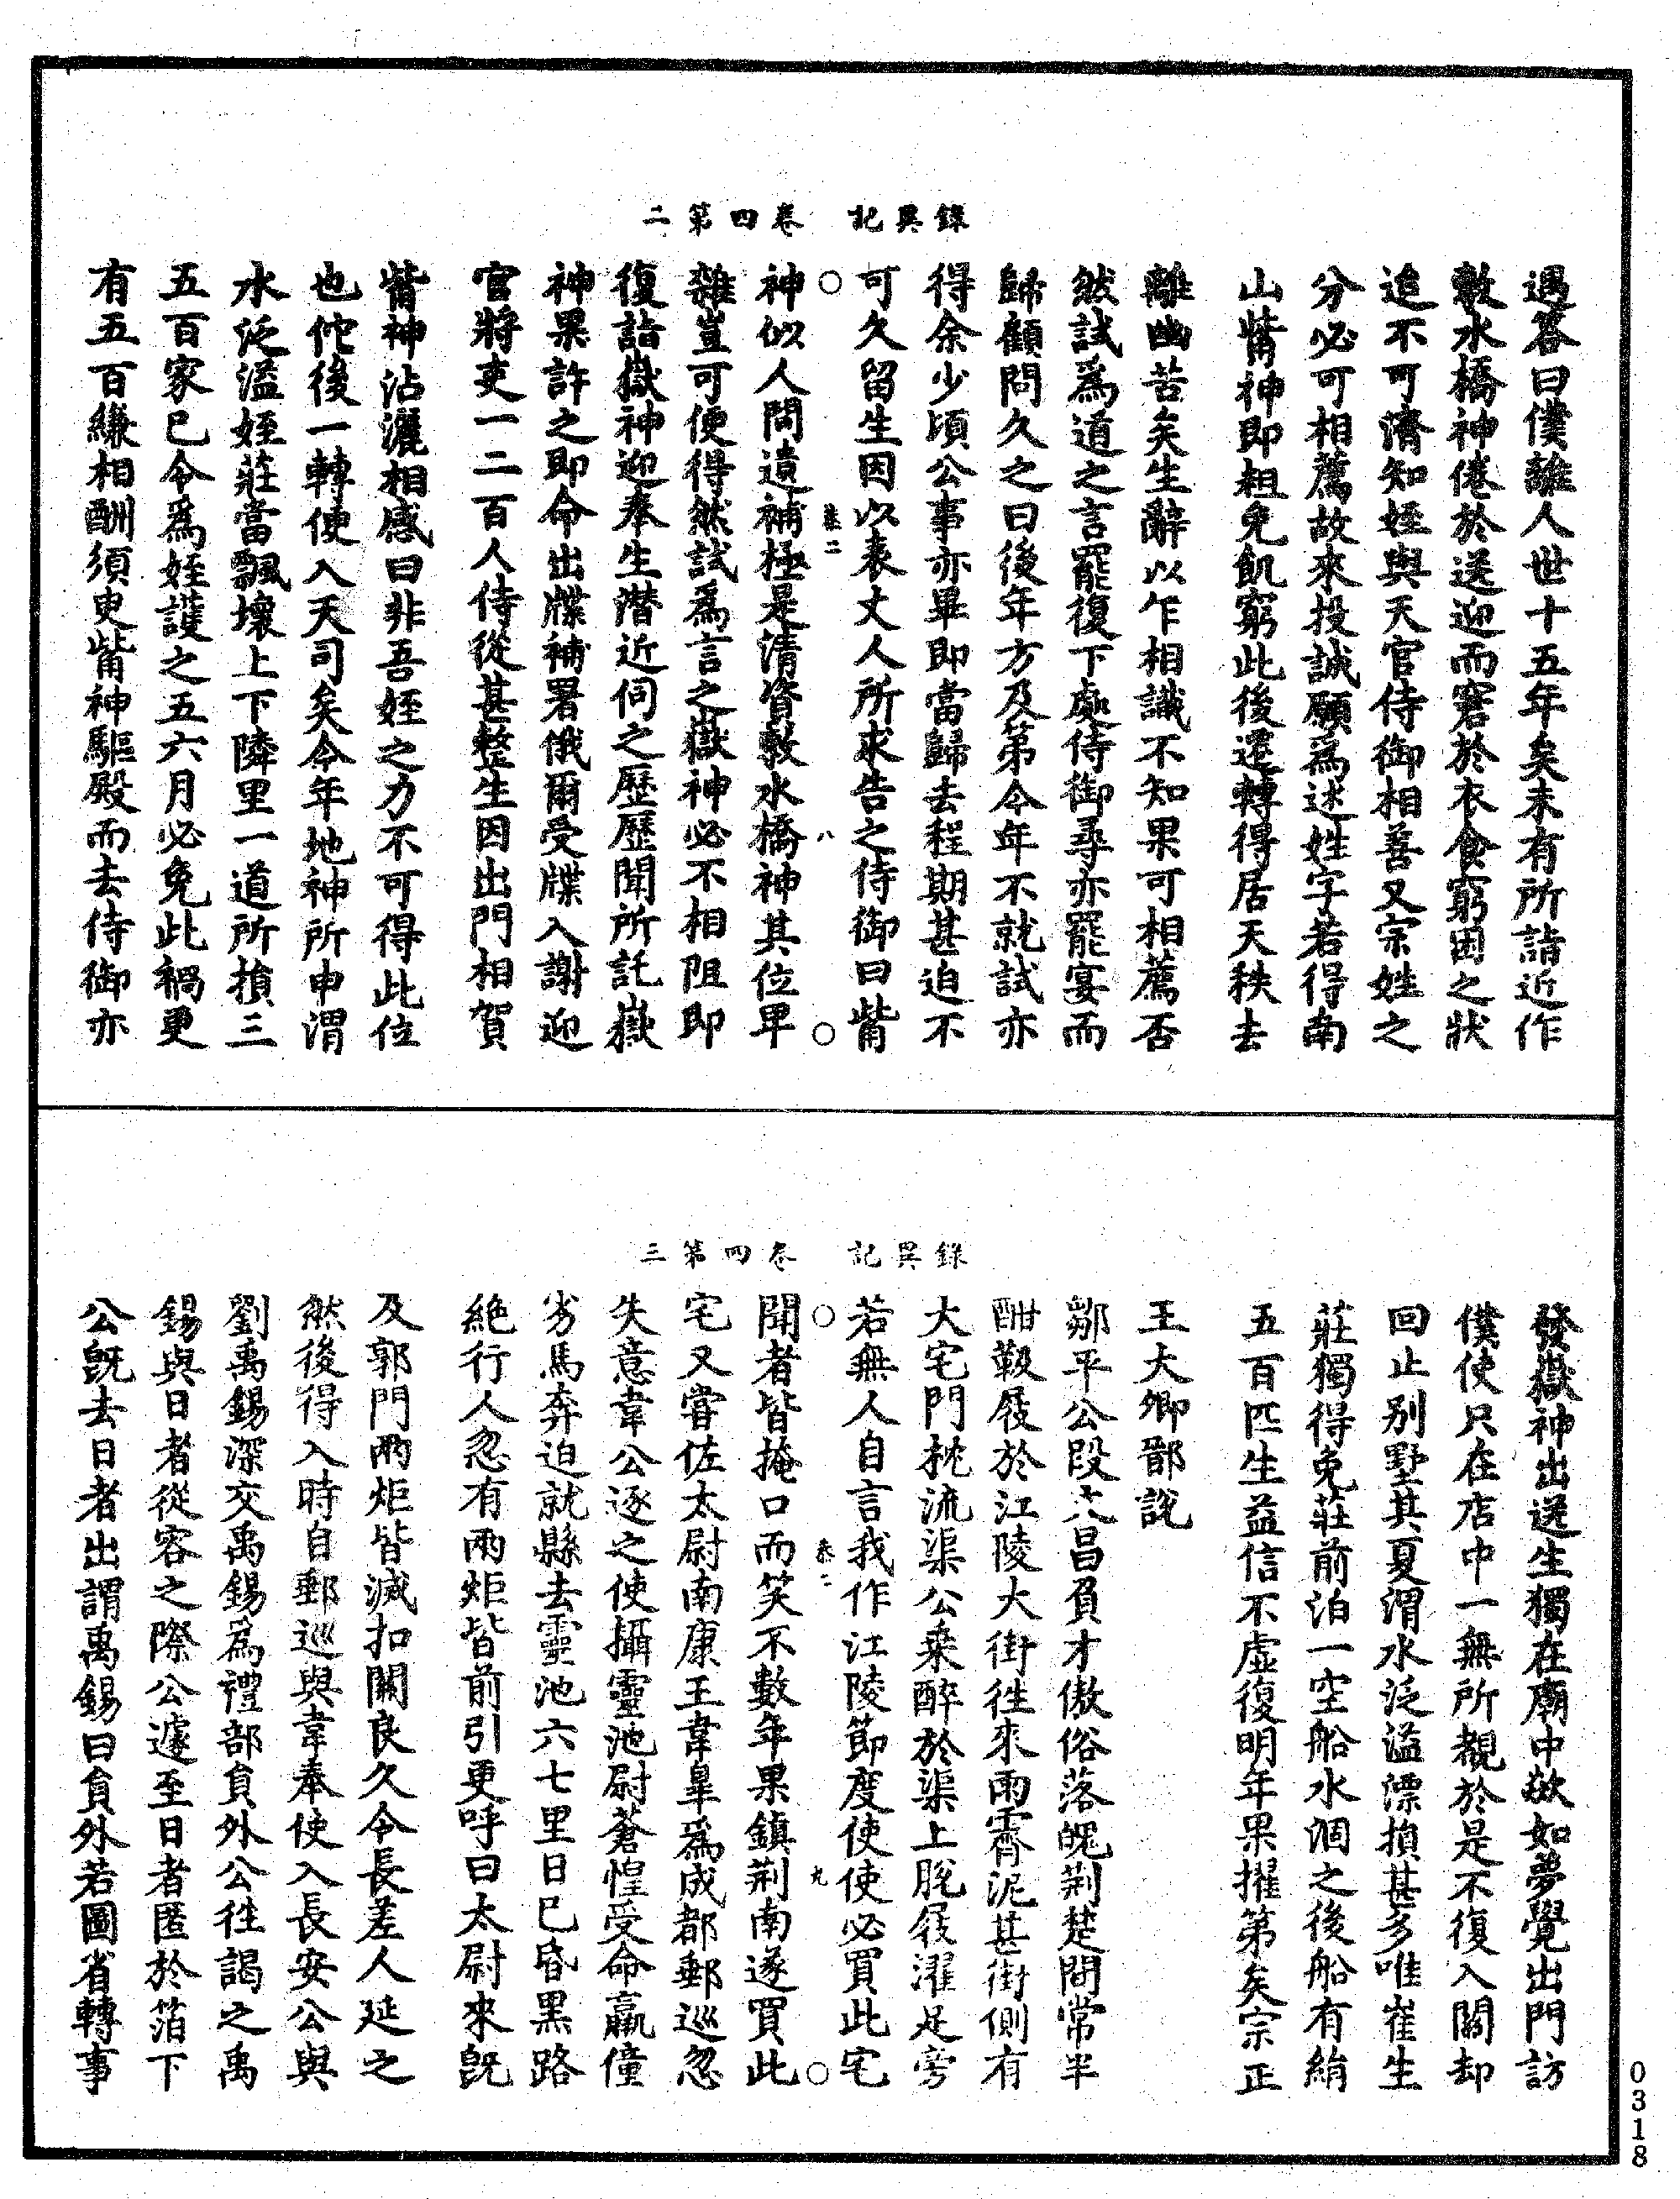 錄異記　卷四第二
遇答曰僕離人世十五年矣未有所詣近作
敷水橋神倦於送迎而窘於衣食窮困之狀
迨不可濟知姪與天官侍御相善又宗姓之
分必可相薦故來投誠願為述姓字若得南
山觜神即粗免飢窮此後遷轉得居天秩去
離幽苦矣生辭以乍相識不知果可相薦否
然試為道之言罷復下處侍御尋亦罷宴而
歸顧問久之曰後年方及第今年不就試亦
得余少頃公事亦畢即當歸去程期甚迫不
可久留生因以表丈人所求告之侍御曰觜
○　卷二　八　○
神似人間遺補極是清資敷水橋神其位卑
雜豈可便得然試為言之嶽神必不相阻即
復詣嶽神迎奉生潛近伺之歷歷聞所託嶽
神果許之即命出牒補署俄爾受牒入謝迎
官將吏一二百人侍從甚整生因出門相賀
觜神沾灑相感曰非吾姪之力不可得此位
也佗後一轉便入天司矣今年地神所申渭
水泛溢姪莊當飄壞上下隣里一道所損三
五百家已令為姪護之五六月必免此禍更
有五百縑相酬須臾觜神驅殿而去侍御亦
錄異記　卷四第三
發嶽神出送生獨在廟中欻如夢覺出門訪
僕使只在店中一無所覩於是不復入關却
回止別墅其夏渭水泛溢漂損甚多唯崔生
莊獨得免莊前泊一空船水涸之後船有絹
五百匹生益信不虛復明年果擢第矣宗正
王大卿鄑說
鄒平公段文昌負才傲俗落魄荆楚間常半
酣靸屐於江陵大街往來雨霽泥甚街側有
大宅門枕流渠公乘醉於渠上脫屐濯足旁
若無人自言我作江陵節度使使必買此宅
○　卷二　九　○
聞者皆掩口而笑不數年果鎮荆南遂買此
宅又嘗佐太尉南康王韋皐為成都郵巡忽
失意韋公逐之使攝靈池尉蒼惶受命羸僮
劣馬奔迫就縣去靈池六七里日已昏黑路
絕行人忽有兩炬皆前引更呼曰太尉來既
及郭門兩炬皆滅扣關良久令長差人延之
然後得入時自郵巡與韋奉使入長安公與
劉禹錫深交禹錫為禮部員外公往謁之禹
錫與日者從容之際公遽至日者匿於箔下
公既去日者出謂禹錫曰員外若圖省轉事
0318